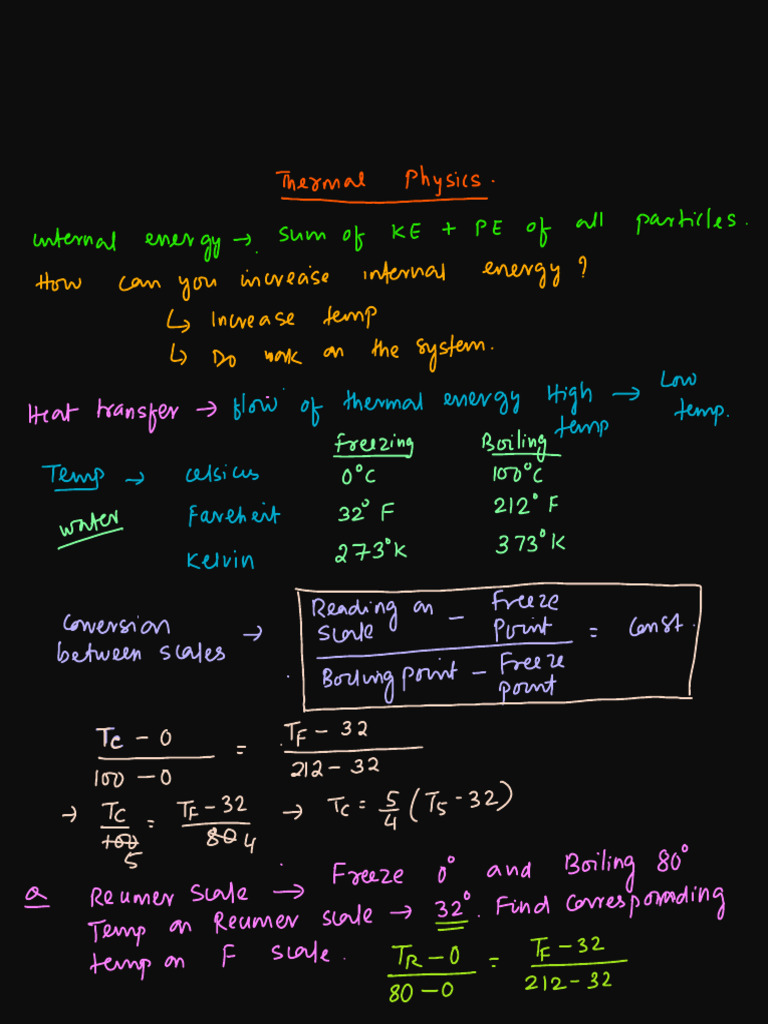 Thermal Physics.
internal energy → sum of KE + PE of all particles.
How can you increase internal energy?
↳ Increase temp
↳ Do work on the system.
Heat transfer → flow of thermal energy High temp → Low temp.
Freezing Boiling
Temp → celsius 0°C 100°C
water Fareheit 32° F 212° F
Kelvin 273°K 373°K
Conversion between scales → Reading on scale - Freeze Point / Boiling point - Freeze point = Const.
Tc - 0 / 100 - 0 = TF - 32 / 212 - 32
→ Tc / 100 5 = TF - 32 / 80 4 → Tc = 5/4 (T5 - 32)
Q Reumer Scale → Freeze 0° and Boiling 80°
Temp on Reumer scale → 32°. Find corresponding
temp on F scale.
TR - 0 / 80 - 0 = TF - 32 / 212 - 32